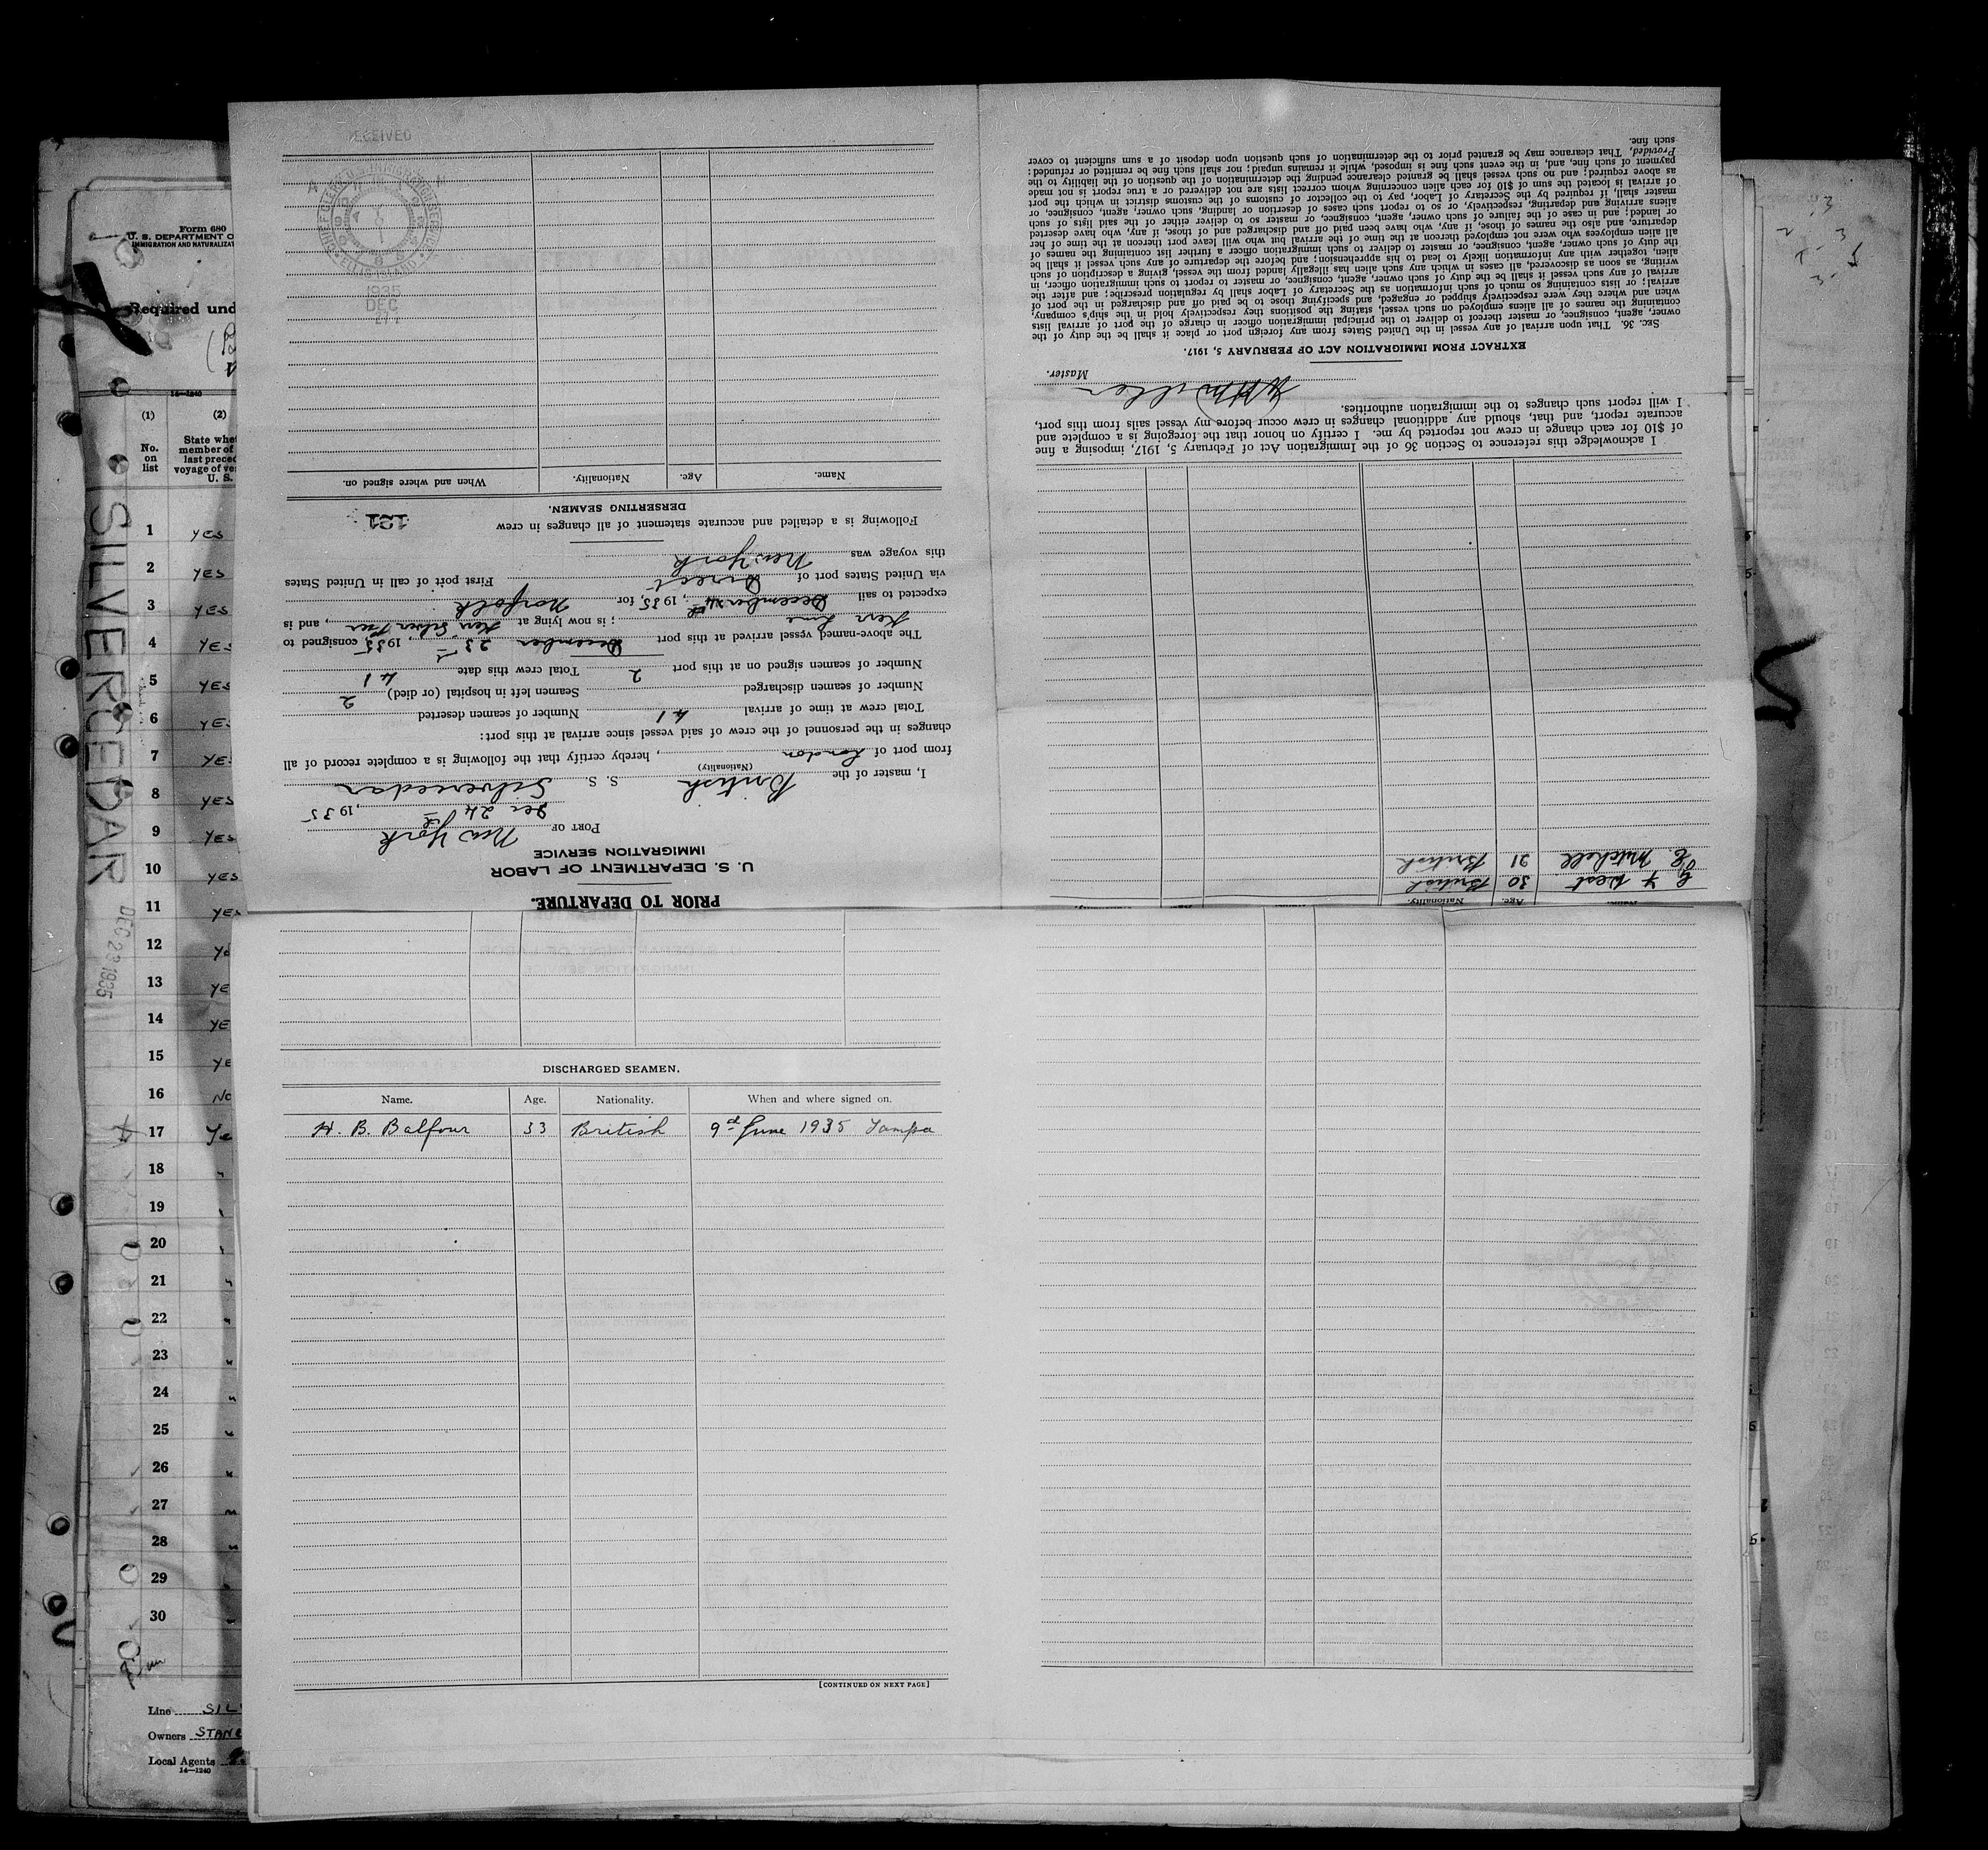 Form 680
U. S. DEPARTMENT O
IMMIGRATION AND NATURALIZAT
Required und
14—1240
(1)
(2)
No. on list
State whet
member of
last preced
voyage of ve
U. S.
SILVERCEDAR
DEC 23 1935
1 YES
2 YES
3 YES
4 YES
5 YES
6 YES
7 YE
8 YES
9 YES
10 YES
11 YES
12
13 YE
14 YE
15 YE
16 NO
17 Ye
18 "
19
20
21 "
22 "
23 "
24 "
25 "
26 "
27 "
28 "
29
30
Line SIL
Owners STAN
Local Agents
14—1240
PRIOR TO DEPARTURE.
U. S. DEPARTMENT OF LABOR
IMMIGRATION SERVICE
PORT OF New York
Dec 24th, 1935
I, master of the British S. S. Silvercedar
(Nationality)
from port of London, hereby certify that the following is a complete record of all
changes in the personnel of the crew of said vessel since arrival at this port:
Total crew at time of arrival 41 Number of seamen deserted
Number of seamen discharged Seamen left in hospital (or died) 2
Number of seamen signed on at this port 2 Total crew this date 41
The above-named vessel arrived at this port December 23rd, 1935, consigned to
Kerr Line; is now lying at Kerr Silver Pier, and is
expected to sail December 24th, 1935, for Norfolk
via United States port of Direct First port of call in United States
this voyage was New York
Following is a detailed and accurate statement of all changes in crew
DERSERTING SEAMEN.
121
Name. Age. Nationality. When and where signed on.
DEC
1935
ELLIS ISLAND
RECEIVED
Name. Age. Nationality.
West 30 British
E Mitchell 21 British
I acknowledge this reference to Section 36 of the Immigration Act of February 5, 1917, imposing a fine
of $10 for each change in crew not reported by me. I certify on honor that the foregoing is a complete and
accurate report, and that, should any additional changes in crew occur before my vessel sails from this port,
I will report such changes to the immigration authorities.
Master.
EXTRACT FROM IMMIGRATION ACT OF FEBRUARY 5, 1917.
SEC. 36. That upon arrival of any vessel in the United States from any foreign port or place it shall be the duty of the
owner, agent, consignee, or master thereof to deliver to the principal immigration officer in charge of the port of arrival lists
containing the names of all aliens employed on such vessel, stating the positions they respectively hold in the ship's company,
when and where they were respectively shipped or engaged, and specifying those to be paid off and discharged in the port of
arrival; or lists containing so much of such information as the Secretary of Labor shall by regulation prescribe; and after the
arrival of any such vessel it shall be the duty of such owner, agent, consignee, or master to report to such immigration officer, in
writing, as soon as discovered, all cases in which any such alien has illegally landed from the vessel, giving a description of such
alien, together with any information likely to lead to his apprehension; and before the departure of any such vessel it shall be
the duty of such owner, agent, consignee, or master to deliver to such immigration officer a further list containing the names of
all alien employees who were not employed thereon at the time of the arrival but who will leave port thereon at the time of her
departure, and also the names of those, if any, who have been paid off and discharged and of those, if any, who have deserted
or landed; and in case of the failure of such owner, agent, consignee, or master so to deliver either of the said lists of such
aliens arriving and departing, respectively, or so to report such cases of desertion or landing, such owner, agent, consignee, or
master shall, if required by the Secretary of Labor, pay to the collector of customs of the customs district in which the port
of arrival is located the sum of $10 for each alien concerning whom correct lists are not delivered or a true report is not made
as above required; and no such vessel shall be granted clearance pending the determination of the question of the liability to the
payment of such fine, and, in the event such fine is imposed, while it remains unpaid; nor shall such fine be remitted or refunded:
Provided, That clearance may be granted prior to the determination of such question upon deposit of a sum sufficient to cover
such fine.
DISCHARGED SEAMEN.
Name. Age. Nationality. When and where signed on.
H. B. Balfour 33 British 9th June 1935 Tampa
[CONTINUED ON NEXT PAGE]